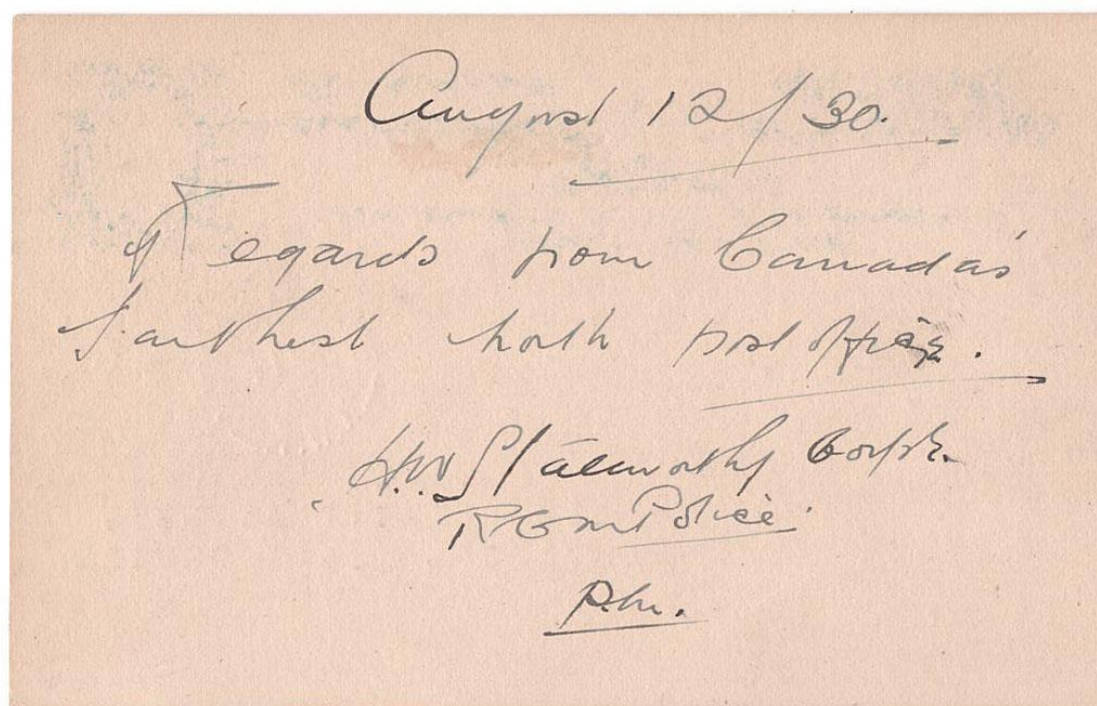 August 12/30.
Regards from Canada's
farthest north post office.
H.W. Stallworthy Corpl.
R C M Police.
P.M.